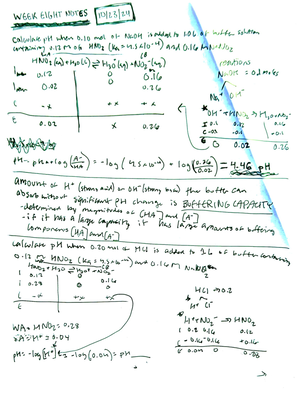 WEEK EIGHT NOTES 10/23/24
Calculate pH when 0.10 mol of NaOH is added to 1.0L of buffer solution
containing 0.12 M of HNO₂ (Ka = 4.5×10⁻⁴) and 0.16 M NaNO₂
HNO₂(aq) + H₂O(l) ⇌ H₃O⁺(aq) + NO₂⁻(aq)
0.12 0 0.16
0.02 0 0.26
C -x +x +x
E 0.02 x 0.26
NaOH = 0.1 moles
Na⁺ OH⁻
OH⁻ + HNO₂ → H₂O + NO₂⁻
I 0.1 0.12 0.16
C -0.1 -0.1 +0.1
E 0 0.02 0.26
pH = pKa + log(A⁻/HA) = -log(4.5×10⁻⁴) + log(0.26/0.02) = 4.46 pH
amount of H⁺ (strong acid) or OH⁻ (strong base) the buffer can
absorb without significant pH change is BUFFERING CAPACITY
- determined by magnitudes of [HA] and [A⁻]
- if it has a large capacity it has large amounts of buffering
components [HA] and [A⁻]
Calculate pH when 0.20 mol of HCl is added to 1L of buffer containing
0.12 M HNO₂ (Ka = 4.5×10⁻⁴) and 0.16 M NaNO₂
HNO₂ + H₂O ⇌ H₃O⁺ + NO₂⁻
I 0.12 0 0.16
I 0.28 0 0
C -x +x +x
E
HCl → 0.2
H⁺ Cl⁻
H⁺ + NO₂⁻ → HNO₂
I 0.2 0.16 0.12
C -0.16 -0.16 +0.16
E 0.04 0 0.28
WA = HNO₂ = 0.28
SA = H⁺ = 0.04
pH = -log[H⁺] = -log(0.04) = pH